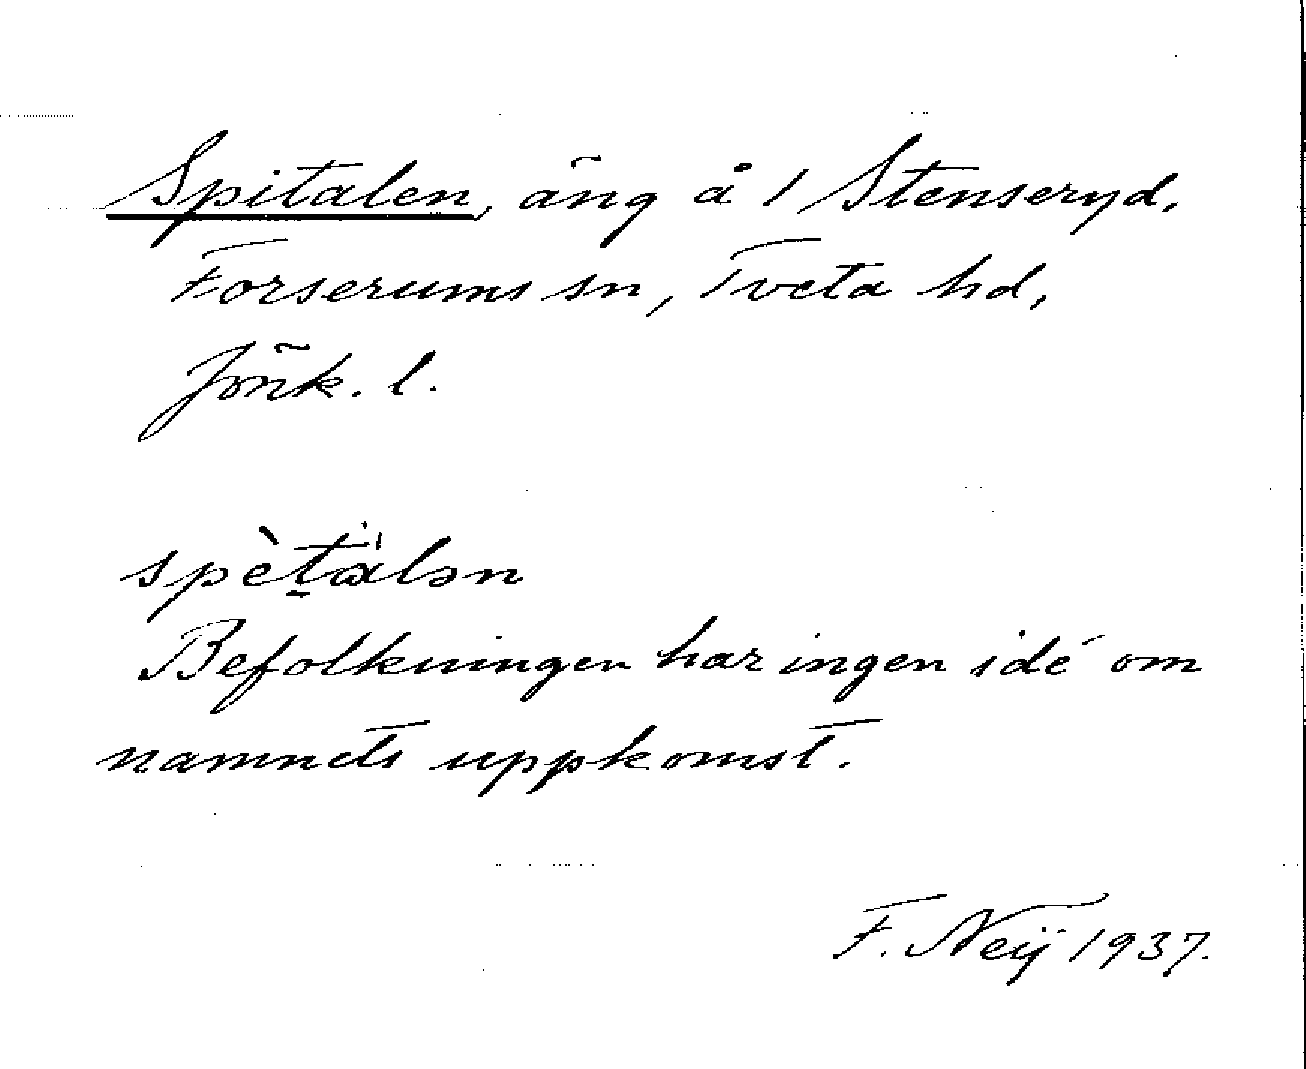 Spitalen, äng å 1 Stenseryd,
Forserums sn, Tveta hd,
Jönk. l.
spètälən
Befolkningen har ingen idé om
namnets uppkomst.
F. Neij 1937.